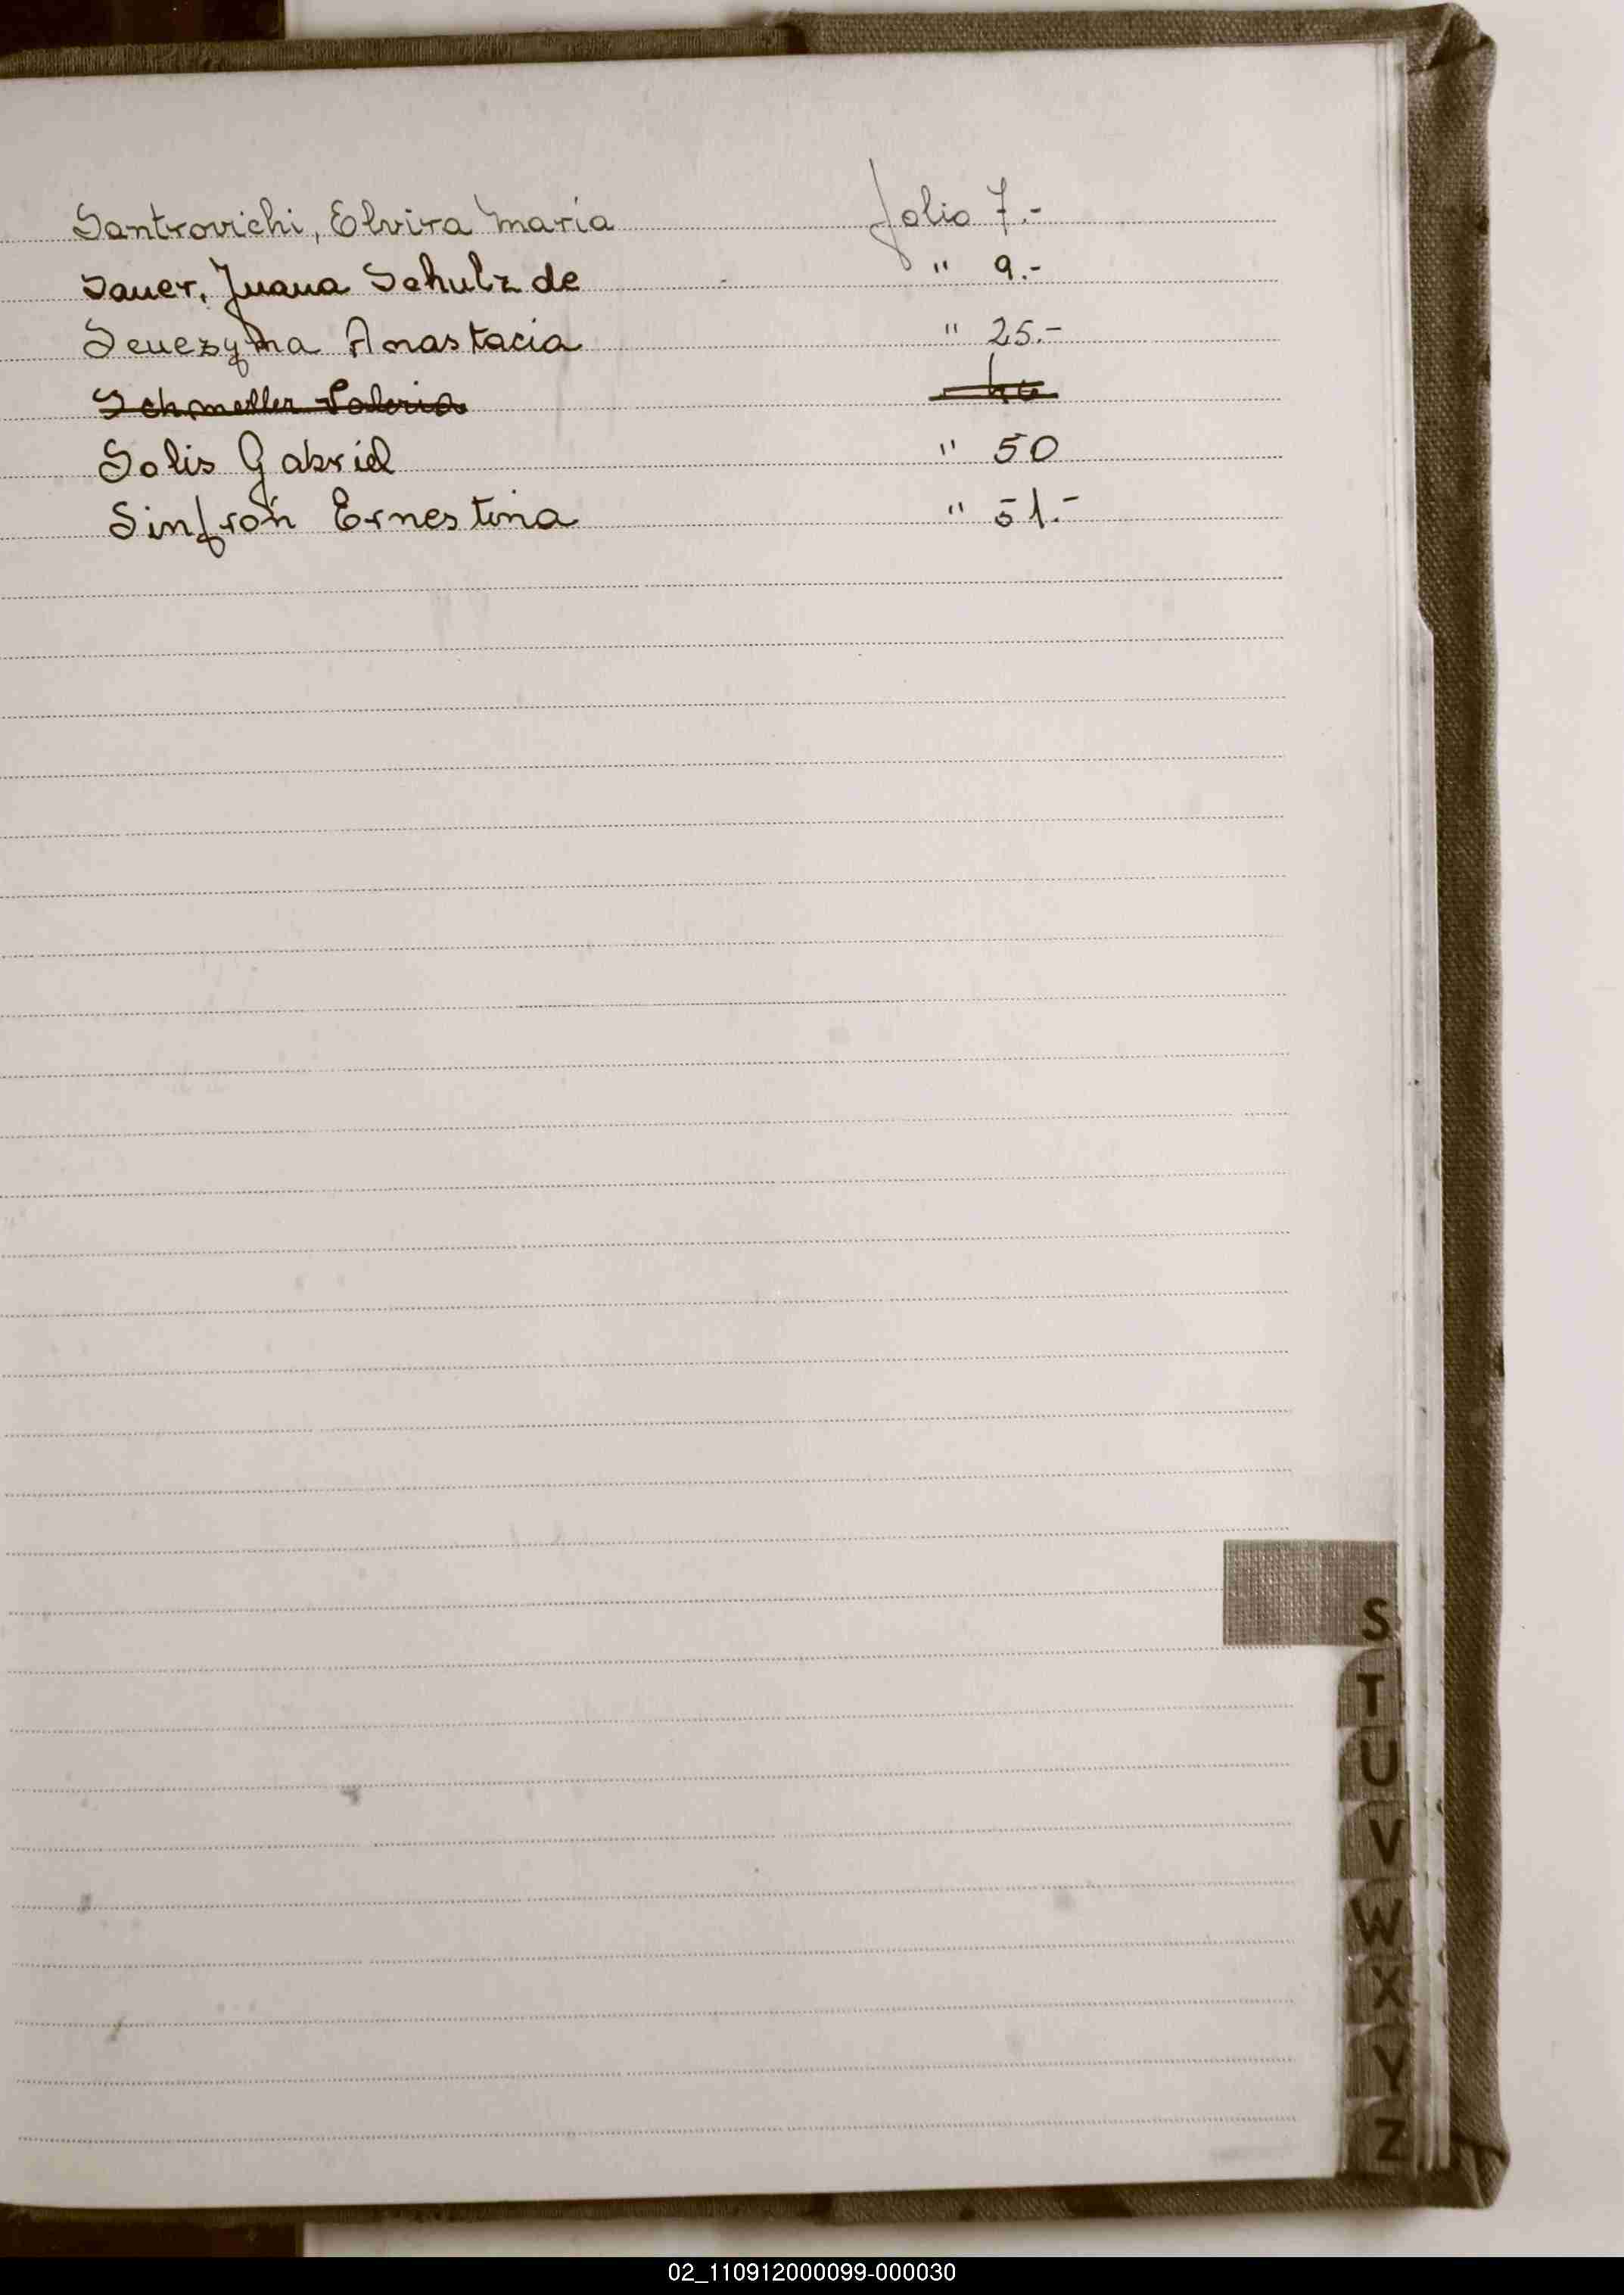 Santrovichi, Elvira Maria folio 7.-
Sauer, Juana Schulz de " 9.-
Seuezyna Anastacia " 25.-
Schmeller
Solis Gabriel " 50
Sinfrón Ernestina " 51.-
S
T
U
V
W
X
Y
Z
02_110912000099-000030